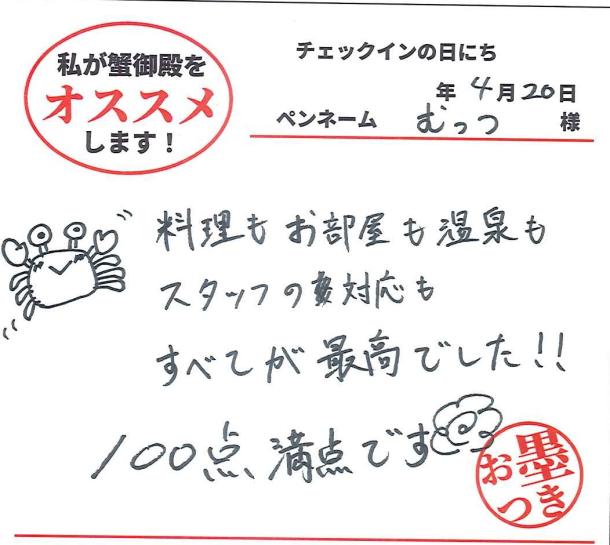 私が蟹御殿を
オススメ
します！
チェックインの日にち
年 4月20日
ペンネーム むっつ 様
料理もお部屋も温泉も
スタッフの対応も
すべてが最高でした!!
100点満点です
お墨
つき